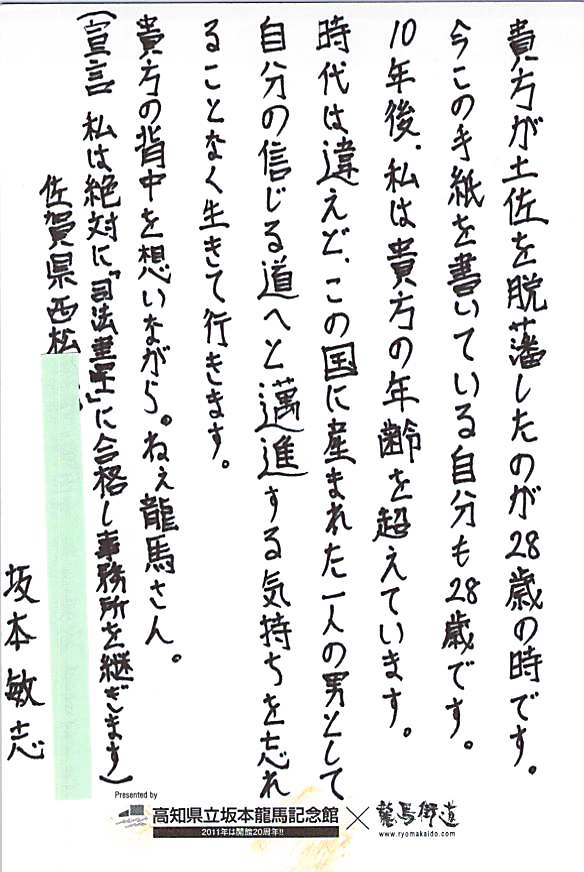 貴方が土佐を脱藩したのが28歳の時です。
今この手紙を書いている自分も28歳です。
10年後、私は貴方の年齢を超えています。
時代は違えど、この国に産まれた一人の男として
自分の信じる道へと邁進する気持ちを忘れ
ることなく生きて行きます。
貴方の背中を想いながら。ねぇ龍馬さん。
(宣言 私は絶対に「司法書士」に合格し事務所を継ぎます)
佐賀県西松
坂本敏志
Presented by
高知県立坂本龍馬記念館
2011年は開館20周年!!
×
龍馬街道
www.ryomakaido.com